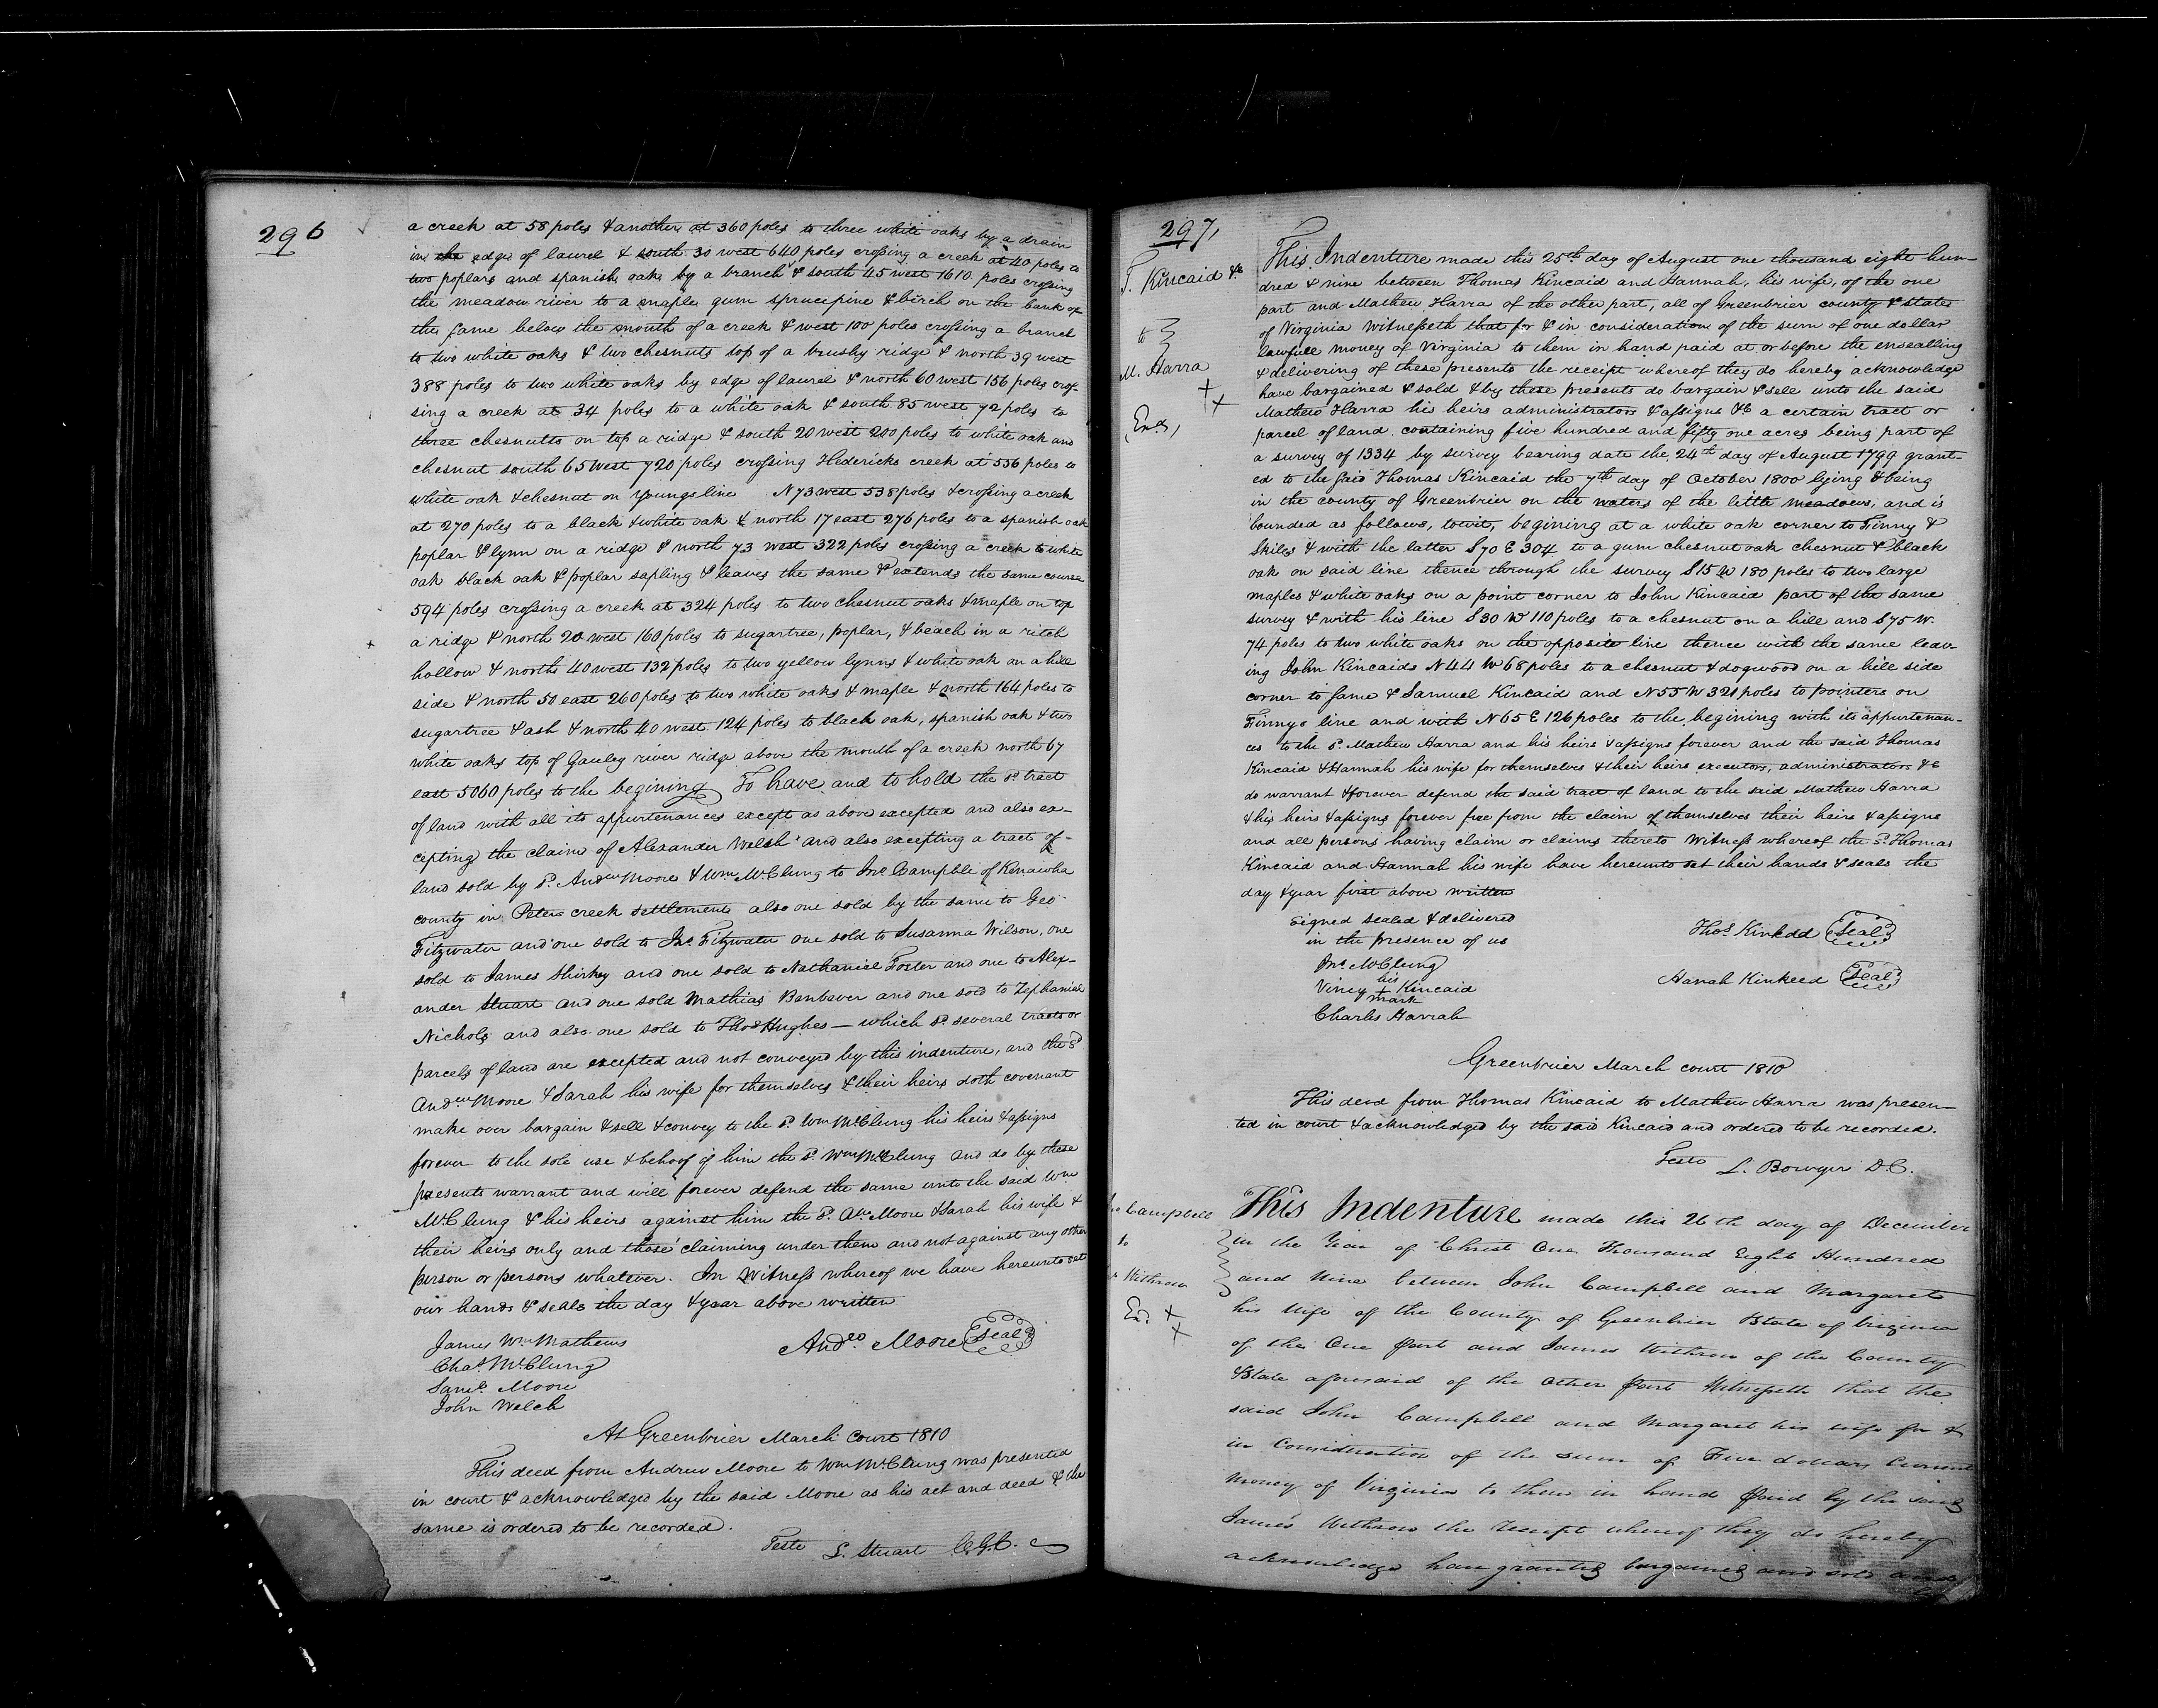 296
a creek at 58 poles & another at 360 poles to three white oaks by a drain
in the edge of laurel & south 30 west 640 poles crossing a creek at 40 poles to
two poplars and spanish oak by a branch & south 45 west 1610 poles crossing
the meadow river to a maple gum sprucepine & birch on the bank of
the same below the mouth of a creek & west 100 poles crossing a branch
to two white oaks & two chesnuts top of a brushy ridge & north 39 west
388 poles to two white oaks by edge of laurel & north 60 west 156 poles cros-
sing a creek at 34 poles to a white oak & south 85 west 72 poles to
three chesnutts on top a ridge & south 20 west 200 poles to white oak and
chesnut south 65 west 720 poles crossing Hedericks creek at 556 poles to
white oak & chesnut on Youngs line N 73 west 538 poles & crossing a creek
at 270 poles to a black & white oak & north 17 east 276 poles to a spanish oak
poplar & lynn on a ridge & north 73 west 322 poles crossing a creek to white
oak black oak & poplar sapling & leaves the same & extends the same course
594 poles crossing a creek at 324 poles to two chesnut oaks & maple on top
a ridge & north 20 west 160 poles to sugartree, poplar, & beach in a ritch
hollow & north 40 west 132 poles to two yellow lynns & white oak on a hill
side & north 50 east 260 poles to two white oaks & maple & north 164 poles to
sugartree & ash & north 40 west 124 poles to black oak, spanish oak & two
white oaks top of Gauley river ridge above the mouth of a creek north 67
east 5060 poles to the begining To have and to hold the sd. tract
of land with all its appurtenances except as above excepted and also ex-
cepting the claim of Alexander Welsh and also excepting a tract of
land sold by sd. Andew Moore & Wm McClung to Jno Campble of Kenawha
county in Peters creek settlements also one sold by the same to Geo.
Fitzwater and one sold to Jno. Fitzwater one sold to Susanna Wilson, one
sold to James Shirkey and one sold to Nathaniel Foster and one to Alex-
ander Stuart and one sold Mathias Banbever and one sold to Zephaniah
Nichols and also one sold to Thos Hughes — which sd. several tracts or
parcels of land are excepted and not conveyed by this indenture, and the sd
Andew Moore & Sarah his wife for themselves & their heirs doth covenant
make over bargain & sell & convey to the sd. Wm McClung his heirs & assigns
forever to the sole use & behoof of him the sd. Wm McClung and do by these
presents warrant and will forever defend the same unto the said Wm
McClung & his heirs against him the sd. Aw. Moore & Sarah his wife &
their heirs only and those claiming under them and not against any other
person or persons whatever. In Witness whereof we have hereunto set
our hands & seals the day & year above written
James Wm Mathews
Andw. Moore Seal
Chas McClung
Saml. Moore
John Welch
At Greenbrier March Court 1810
This deed from Andrew Moore to Wm McClung was presented
in court & acknowledged by the said Moore as his act and deed & the
same is ordered to be recorded.
Teste L. Stuart C.G.C.
297,
T. Kincaid &c
to
M. Harra
Exd,
This Indenture made this 25th day of August one thousand eight hun-
dred & nine between Thomas Kincaid and Hannah, his wife, of the one
part and Mathew Harra of the other part, all of Greenbrier county & state
of Virginia Witnesseth that for & in consideration of the sum of one dollar
lawfull money of Virginia to them in hand paid at or before the ensealling
& delivering of these presents the receipt whereof they do hereby acknowledge
have bargained & sold & by these presents do bargain & sell unto the said
Mathew Harra his heirs administrators & assigns &c a certain tract or
parcel of land containing five hundred and fifty one acres being part of
a survey of 1334 by survey bearing date the 24th day of August 1799 grant-
ed to the said Thomas Kincaid the 7th day of October 1800 lying & being
in the county of Greenbrier on the waters of the little meadows, and is
bounded as follows, towit, begining at a white oak corner to Finny &
Skiles & with the latter S 70 E 304 to a gum chesnut oak chesnut & black
oak on said line thence through the survey S 15 W 180 poles to two large
maples & white oaks on a point corner to John Kincaid part of the same
survey & with his line S 30 W 110 poles to a chesnut on a hill and S 75 W.
74 poles to two white oaks on the opposite line thence with the same leav-
ing John Kincaids N 44 W 68 poles to a chesnut & dogwood on a hill side
corner to same & Samuel Kincaid and N 55 W 320 poles to pointers on
Finnys line and with N 65 E 126 poles to the begining with its appurtenan-
ces to the sd. Mathew Harra and his heirs & assigns forever and the said Thomas
Kincaid & Hannah his wife for themselves & their heirs executors, administrators &c
do warrant & forever defend the said tract of land to the said Mathew Harra
& his heirs & assigns forever free from the claim of themselves their heirs & assigns
and all persons having claim or claims thereto Witness whereof the sd. Thomas
Kincaid and Hannah his wife have hereunto set their hands & seals the
day & year first above written
Signed sealed & delivered
in the presence of us
Thos Kinkdd Seal
Jno. McClung
Viney his + mark Kincaid
Hanah Kinkeed Seal
Charles Harrah
Greenbrier March court 1810
This deed from Thomas Kincaid to Mathew Harra was presen-
ted in court & acknowledged by the said Kincaid and ordered to be recorded.
Teste L. Bowyer D.C.
Campbell
to
Withrow
Exd
This Indenture made this 26th day of December
in the Year of Christ One Thousand Eight Hundred
and Nine between John Campbell and Margaret
his Wife of the County of Greenbrier State of Virginia
of the One part and James Withrow of the County
& State aforesaid of the Other part Witnesseth that the
said John Campbell and Margaret his wife for &
in Consideration of the sum of Five dollars Current
money of Virginia to them in hand paid by the said
James Withrow the receipt whereof they do hereby
acknowledge have granted bargained and sold and